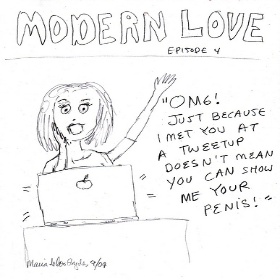 MODERN LOVE
EPISODE 4
"OMG!
JUST BECAUSE
I MET YOU AT
A TWEETUP
DOESN'T MEAN
YOU CAN SHOW
ME YOUR
PENIS!"
Maria 9/09